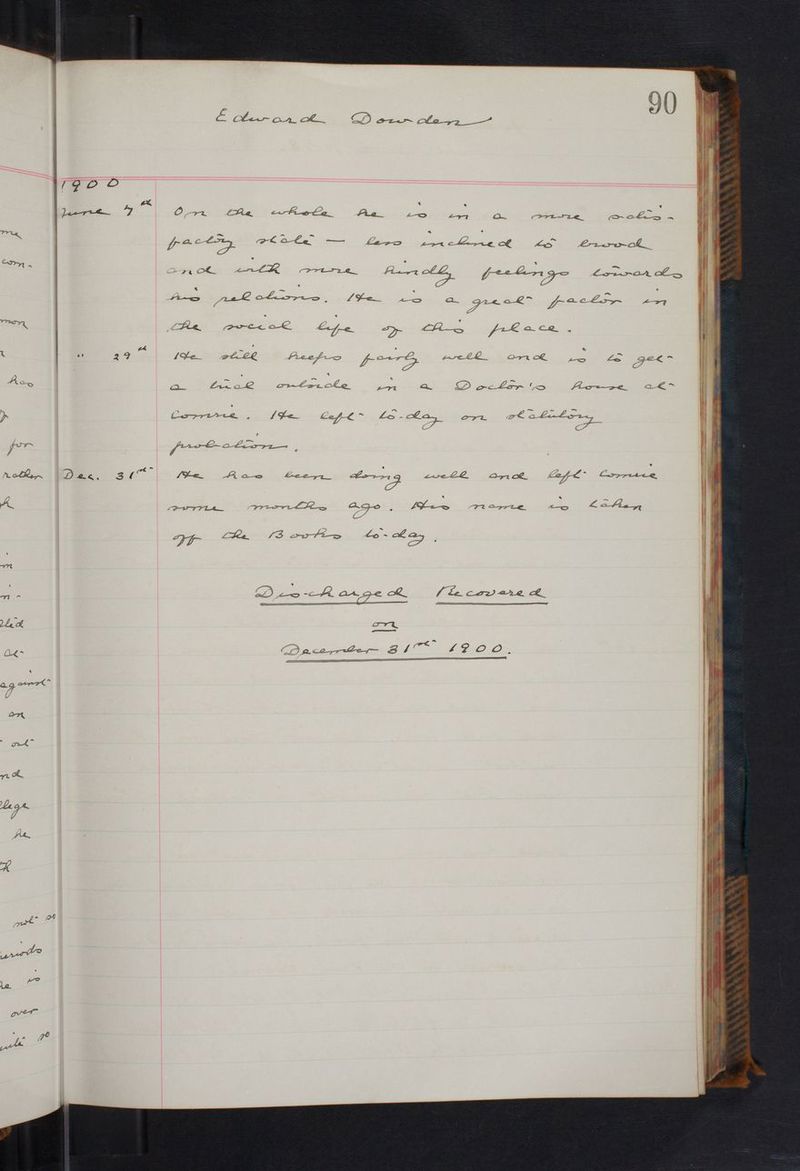 90
Edward Dowden
1900
June 7th On the whole he is in a more satis-
factory state — less inclined to brood
and with more kindly feelings towards
his relations. He is a great factor in
the social life of this place.
" 29th He still keeps fairly well and is to get
a trial outside in a Doctor's house at
Comrie. He left to-day on statutory
probation.
Dec. 31st He has been doing well and left Comrie
some months ago. His name is taken
off the Books to-day.
Discharged Recovered
on
December 31st 1900.
me
com-
mon
has
for
rather
at
against
an
out
nd
lege
he
not so
eriods
he is
over
uite so